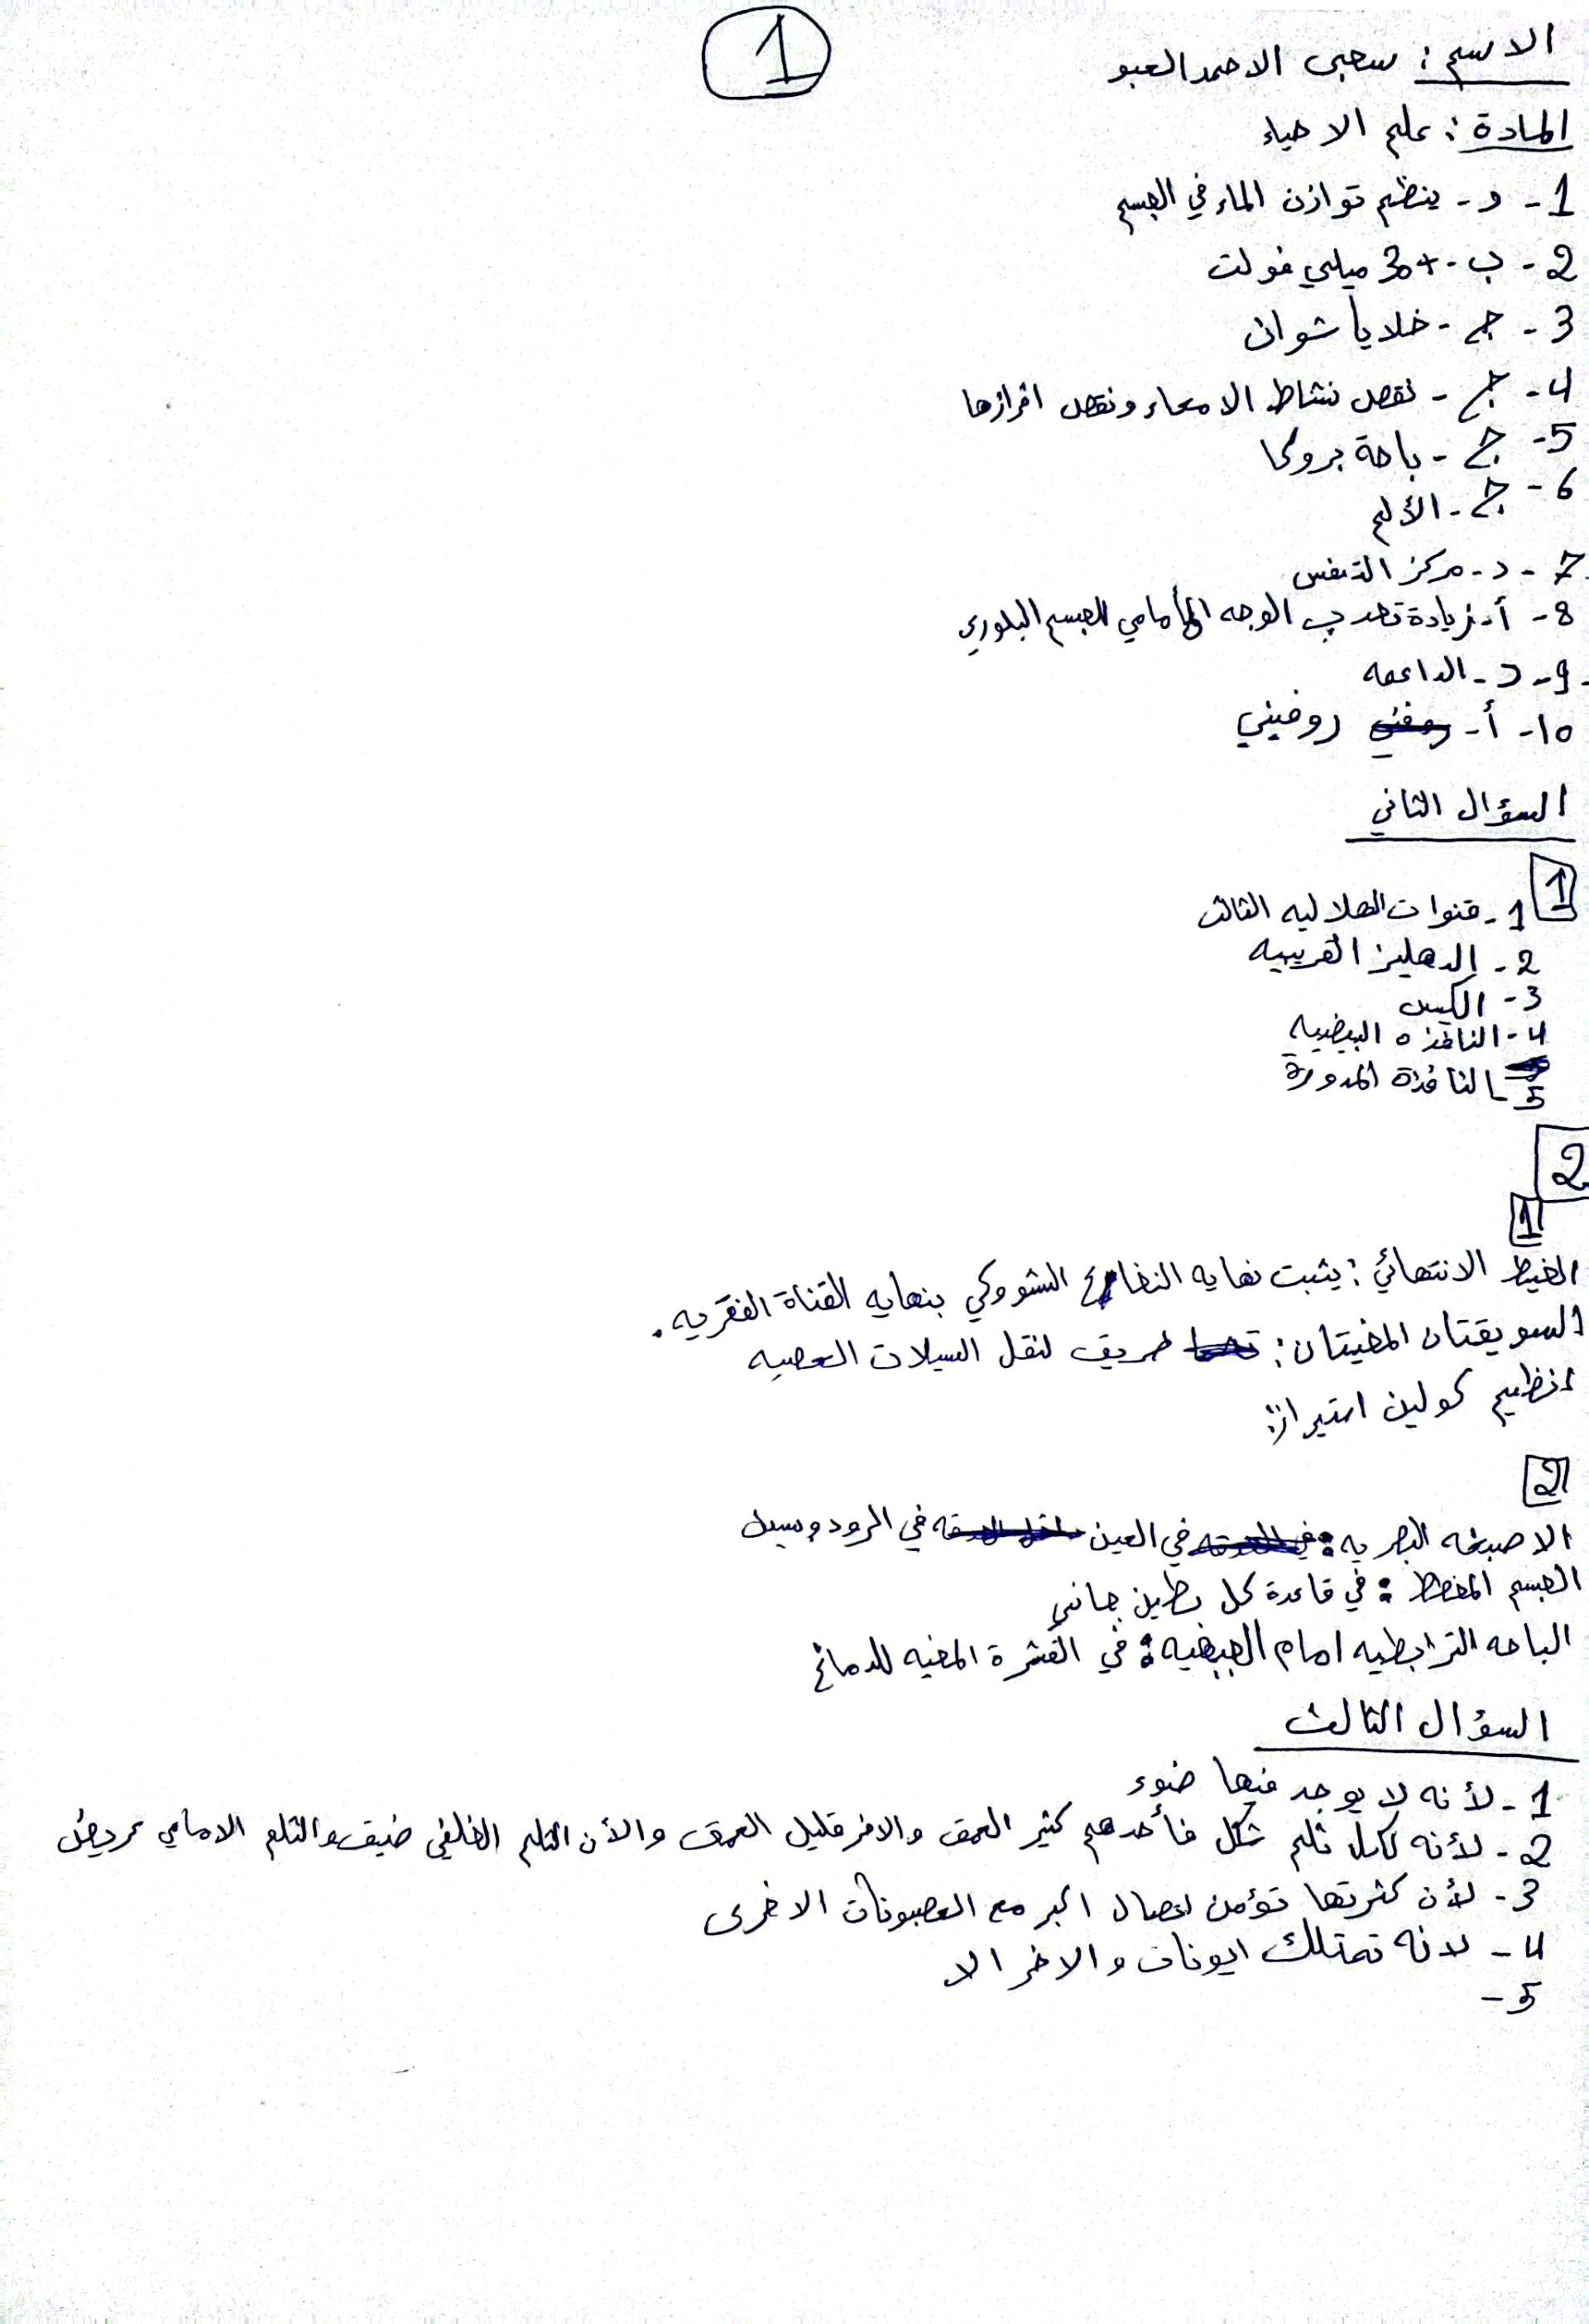 1
الاسم : سحبى الاحمد العبو
المادة : علم الاحياء
1 - د - ينظم توازن الماء في الجسم
2 - ب - +30 ميلي فولت
3 - ج - خلايا شوان
4 - ج - نقص نشاط الامعاء ونقص افرازها
5 - ج - باحة بروكا
6 - ج - الألم
7 - د - مركز التنفس
8 - أ - زيادة تحدب الوجه الأمامي للجسم البلوري
9 - د - الداعمه
10 - أ - روفيني
السؤال الثاني
1
1 - قنوات الهلاليه الثالث
2 - الدهليز القريبيه
3 - الكيس
4 - النافذه البيضيه
5 - النافذة المدورة
2
1
الخيط الانتهائي : يثبت نهايه النخاع الشووكي بنهايه القناة الفقريه .
السويقتان المخيتان : طريق لنقل السيلات العصبيه
انظيم كولين استيراز :
2
الاصبغه البصريه : في العين في الرودوبسين
الجسم المخطط : في قاعدة كل بطين جانبي
الباحه الترابطيه امام الجبهيه : في القشرة المخيه للدماغ
السؤال الثالث
1 - لأنه لا يوجد فيها ضوء
2 - لأنه لكل ثلم شكل فأحدهم كثير العمق والاخر قليل العمق والأن الثلم الخلفي ضيق والثلم الامامي عريض
3 - لأن كثرتها تؤمن اتصال اكبر مع العصبونات الاخرى
4 - لانه تمتلك ايونات والاخر الا
5 -